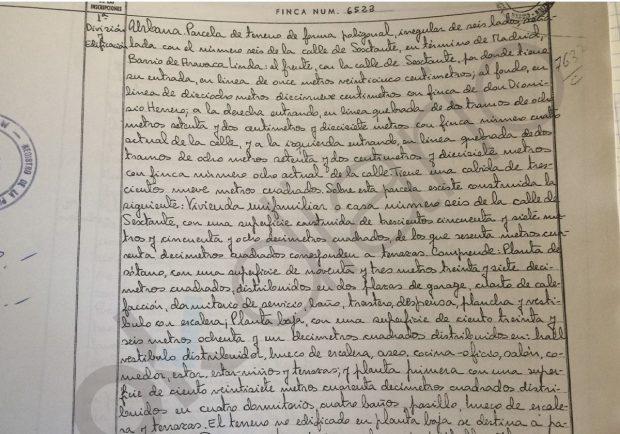 FINCA NUM. 6523
INSCRIPCIONES
1ª
División
y
Edificación
Urbana Parcela de terreno de forma poligonal, irregular de seis lados, seña-
lada con el número seis de la calle de Sextante, en término de Madrid,
Barrio de Aravaca Linda: al frente, con la calle de Sextante, por donde tiene
su entrada, en línea de once metros veinticinco centímetros; al fondo, en
línea de dieciocho metros diecinueve centímetros con finca de don Dioni-
sio Herrero; a la derecha entrando, en línea quebrada de dos tramos de ocho
metros setenta y dos centímetros y diecisiete metros con finca número cuatro
actual de la calle, y a la izquierda entrando, en línea quebrada de dos
tramos de ocho metros setenta y dos centímetros y diecisiete metros
con finca número ocho actual de la calle. Tiene una cabida de tres-
cientos nueve metros cuadrados. Sobre esta parcela existe construida la
siguiente: Vivienda unifamiliar o casa número seis de la calle de
Sextante, con una superficie construida de trescientos cincuenta y siete me-
tros y cincuenta y ocho decímetros cuadrados, de los que sesenta metros cua-
renta decímetros cuadrados corresponden a terrazas. Comprende: Planta de
sótano, con una superficie de noventa y tres metros treinta y siete decí-
metros cuadrados, distribuidos en dos plazas de garage, cuarto de cale-
facción, dormitorio de servicio, baño, trastero, despensa, plancha y vestí-
bulo con escalera; Planta baja, con una superficie de ciento treinta y
seis metros ochenta y un decímetros cuadrados distribuidos en: hall
vestíbulo distribuidor, hueco de escalera, aseo, cocina-oficio, salón, co-
medor, estar, estar-niños y terrazas; y planta primera con una super-
ficie de ciento veintisiete metros cuarenta decímetros cuadrados distri-
buidos en cuatro dormitorios, cuatro baños, pasillo, hueco de escale-
ra y terrazas. El terreno no edificado en planta baja se destina a pa-